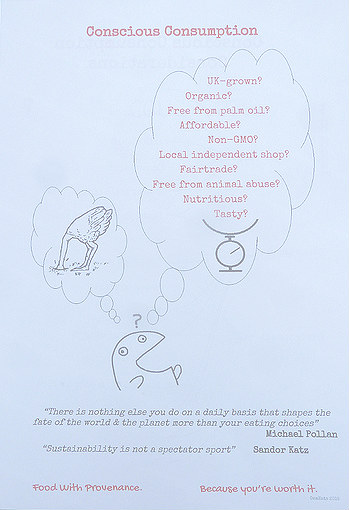 Conscious Consumption
UK-grown?
Organic?
Free from palm oil?
Affordable?
Non-GMO?
Local independent shop?
Fairtrade?
Free from animal abuse?
Nutritious?
Tasty?
?
"There is nothing else you do on a daily basis that shapes the
fate of the world & the planet more than your eating choices"
Michael Pollan
"Sustainability is not a spectator sport" Sandor Katz
Food With Provenance. Because you're worth it.